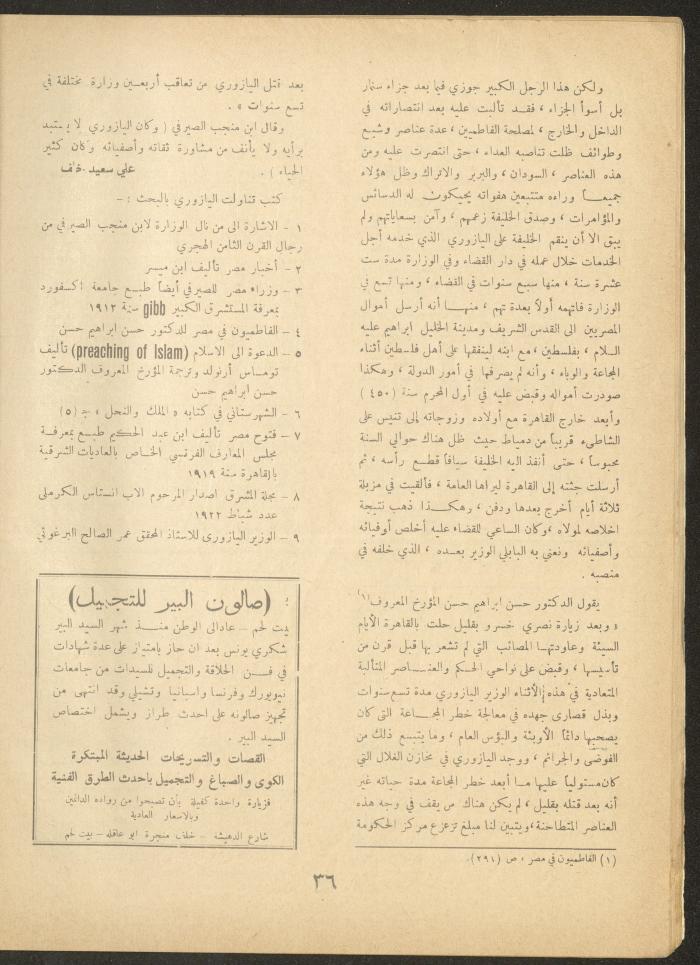 ولكن هذا الرجل الكبير جوزي فيما بعد جزاء سنمار
بل أسوأ الجزاء ، فقد تألبت عليه بعد انتصاراته في
الداخل والخارج ، لمصلحة الفاطميين ، عدة عناصر وشيع
وطوائف ظلت تناصبه العداء ، حتى انتصرت عليه ومن
هذه العناصر ، السودان ، والبربر والاتراك وظل هؤلاء
جميعاً وراءه متتبعين هفواته يحيكون له الدسائس
والمؤامرات ، وصدق الخليفة زعمهم ، وآمن بسعاياتهم ولم
يبق الا أن ينقم الخليفة على اليازوري الذي خدمه أجل
الخدمات خلال عمله في دار القضاء وفي الوزارة مدة ست
عشرة سنة ، منها سبع سنوات في القضاء ، ومنها تسع في
الوزارة فاتهمه أولاً بعدة تهم ، منها أنه أرسل أموال
المصريين الى القدس الشريف ومدينة الخليل ابراهيم عليه
السلام ، بفلسطين ، مع ابنه لينفقها على أهل فلسطين أثناء
المجاعة والوباء ، وأنه لم يصرفها في أمور الدولة ، وهكذا
صودرت أمواله وقبض عليه في أول المحرم سنة (٤٥٠)
وأبعد خارج القاهرة مع أولاده وزوجاته إلى تنيس على
الشاطىء قريباً من دمياط حيث ظل هناك حوالي السنة
محبوساً ، حتى أنفذ اليه الخليفة سيافاً قطع رأسه ، ثم
أرسلت جثته إلى القاهرة ليراها العامة ، فألقيت في مزبلة
ثلاثة أيام أخرج بعدها ودفن ، وهكذا ذهب نتيجة
اخلاصه لمولاه ، وكان الساعي للقضاء عليه أخلص أوفيائه
وأصفيائه ونعني به البابلي الوزير بعده ، الذي خلفه في
منصبه .
يقول الدكتور حسن ابراهيم حسن المؤرخ المعروف (١)
« وبعد زيارة نصري خسرو بقليل حلت بالقاهرة الأيام
السيئة وعاودتها المصائب التي لم تشعر بها قبل قرن من
تأسيسها ، وقبض على نواحي الحكم والعناصر المتألبة
المتعادية في هذه الأثناء الوزير اليازوري مدة تسع سنوات
وبذل قصارى جهده في معالجة خطر المجاعة التي كان
يصحبها دائماً الأوبئة والبؤس العام ، وما يتبع ذلك من
الفوضى والجرائم ، ووجد اليازوري في مخازن الغلال التي
كان مستولياً عليها ما أبعد خطر المجاعة مدة حياته غير
أنه بعد قتله بقليل ، لم يكن هناك من يقف في وجه هذه
العناصر المتطاحنة ، ويتبين لنا مبلغ تزعزع مركز الحكومة
(١) الفاطميون في مصر ، ص (٢٩١) .
بعد قتل اليازوري من تعاقب أربعين وزارة مختلفة في
تسع سنوات » .
وقال ابن منجب الصيرفي ( وكان اليازوري لا يستبد
برأيه ولا يأنف من مشاورة ثقاته وأصفيائه وكان كثير
الحياء ) . علي سعيد خلف
كتب تناولت اليازوري بالبحث : ـ
١ ـ الاشارة الى من نال الوزارة لابن منجب الصيرفي من
رجال القرن الثامن الهجري
٢ ـ أخبار مصر تأليف ابن ميسر
٣ ـ وزراء مصر للصيرفي أيضاً طبع جامعة اكسفورد
بمعرفة المستشرق الكبير gibb سنة ١٩١٢
٤ ـ الفاطميون في مصر للدكتور حسن ابراهيم حسن
٥ ـ الدعوة الى الاسلام (preaching of Islam) تأليف
توماس أرنولد وترجمة المؤرخ المعروف الدكتور
حسن ابراهيم حسن
٦ ـ الشهرستاني في كتابه « الملك والنحل » ج (٥)
٧ ـ فتوح مصر تأليف ابن عبد الحكيم طبع بمعرفة
مجلس المعارف الفرنسي الخاص بالعاديات الشرقية
بالقاهرة سنة ١٩١٩
٨ ـ مجلة المشرق اصدار المرحوم الاب انستاس الكرملي
عدد شباط ١٩٢٢
٩ ـ الوزير اليازوري للاستاذ المحقق عمر الصالح البرغوثي
(صالون البير للتجميل)
بيت لحم ـ عاد الى الوطن منذ شهر السيد البير
شكري يونس بعد ان حاز بامتياز على عدة شهادات
في فن الحلاقة والتجميل للسيدات من جامعات
نيويورك وفرنسا واسبانيا وتشيلي وقد انتهى من
تجهيز صالونه على احدث طراز ويشمل اختصاص
السيد البير .
القصات والتسريحات الحديثة المبتكرة
الكوى والصباغ والتجميل باحدث الطرق الفنية
فزيارة واحدة كفيلة بأن تصبحوا من رواده الدائمين
وبالاسعار العادية
شارع الدهيشة ـ خلف منجرة ابو عاقله ـ بيت لحم
٣٦